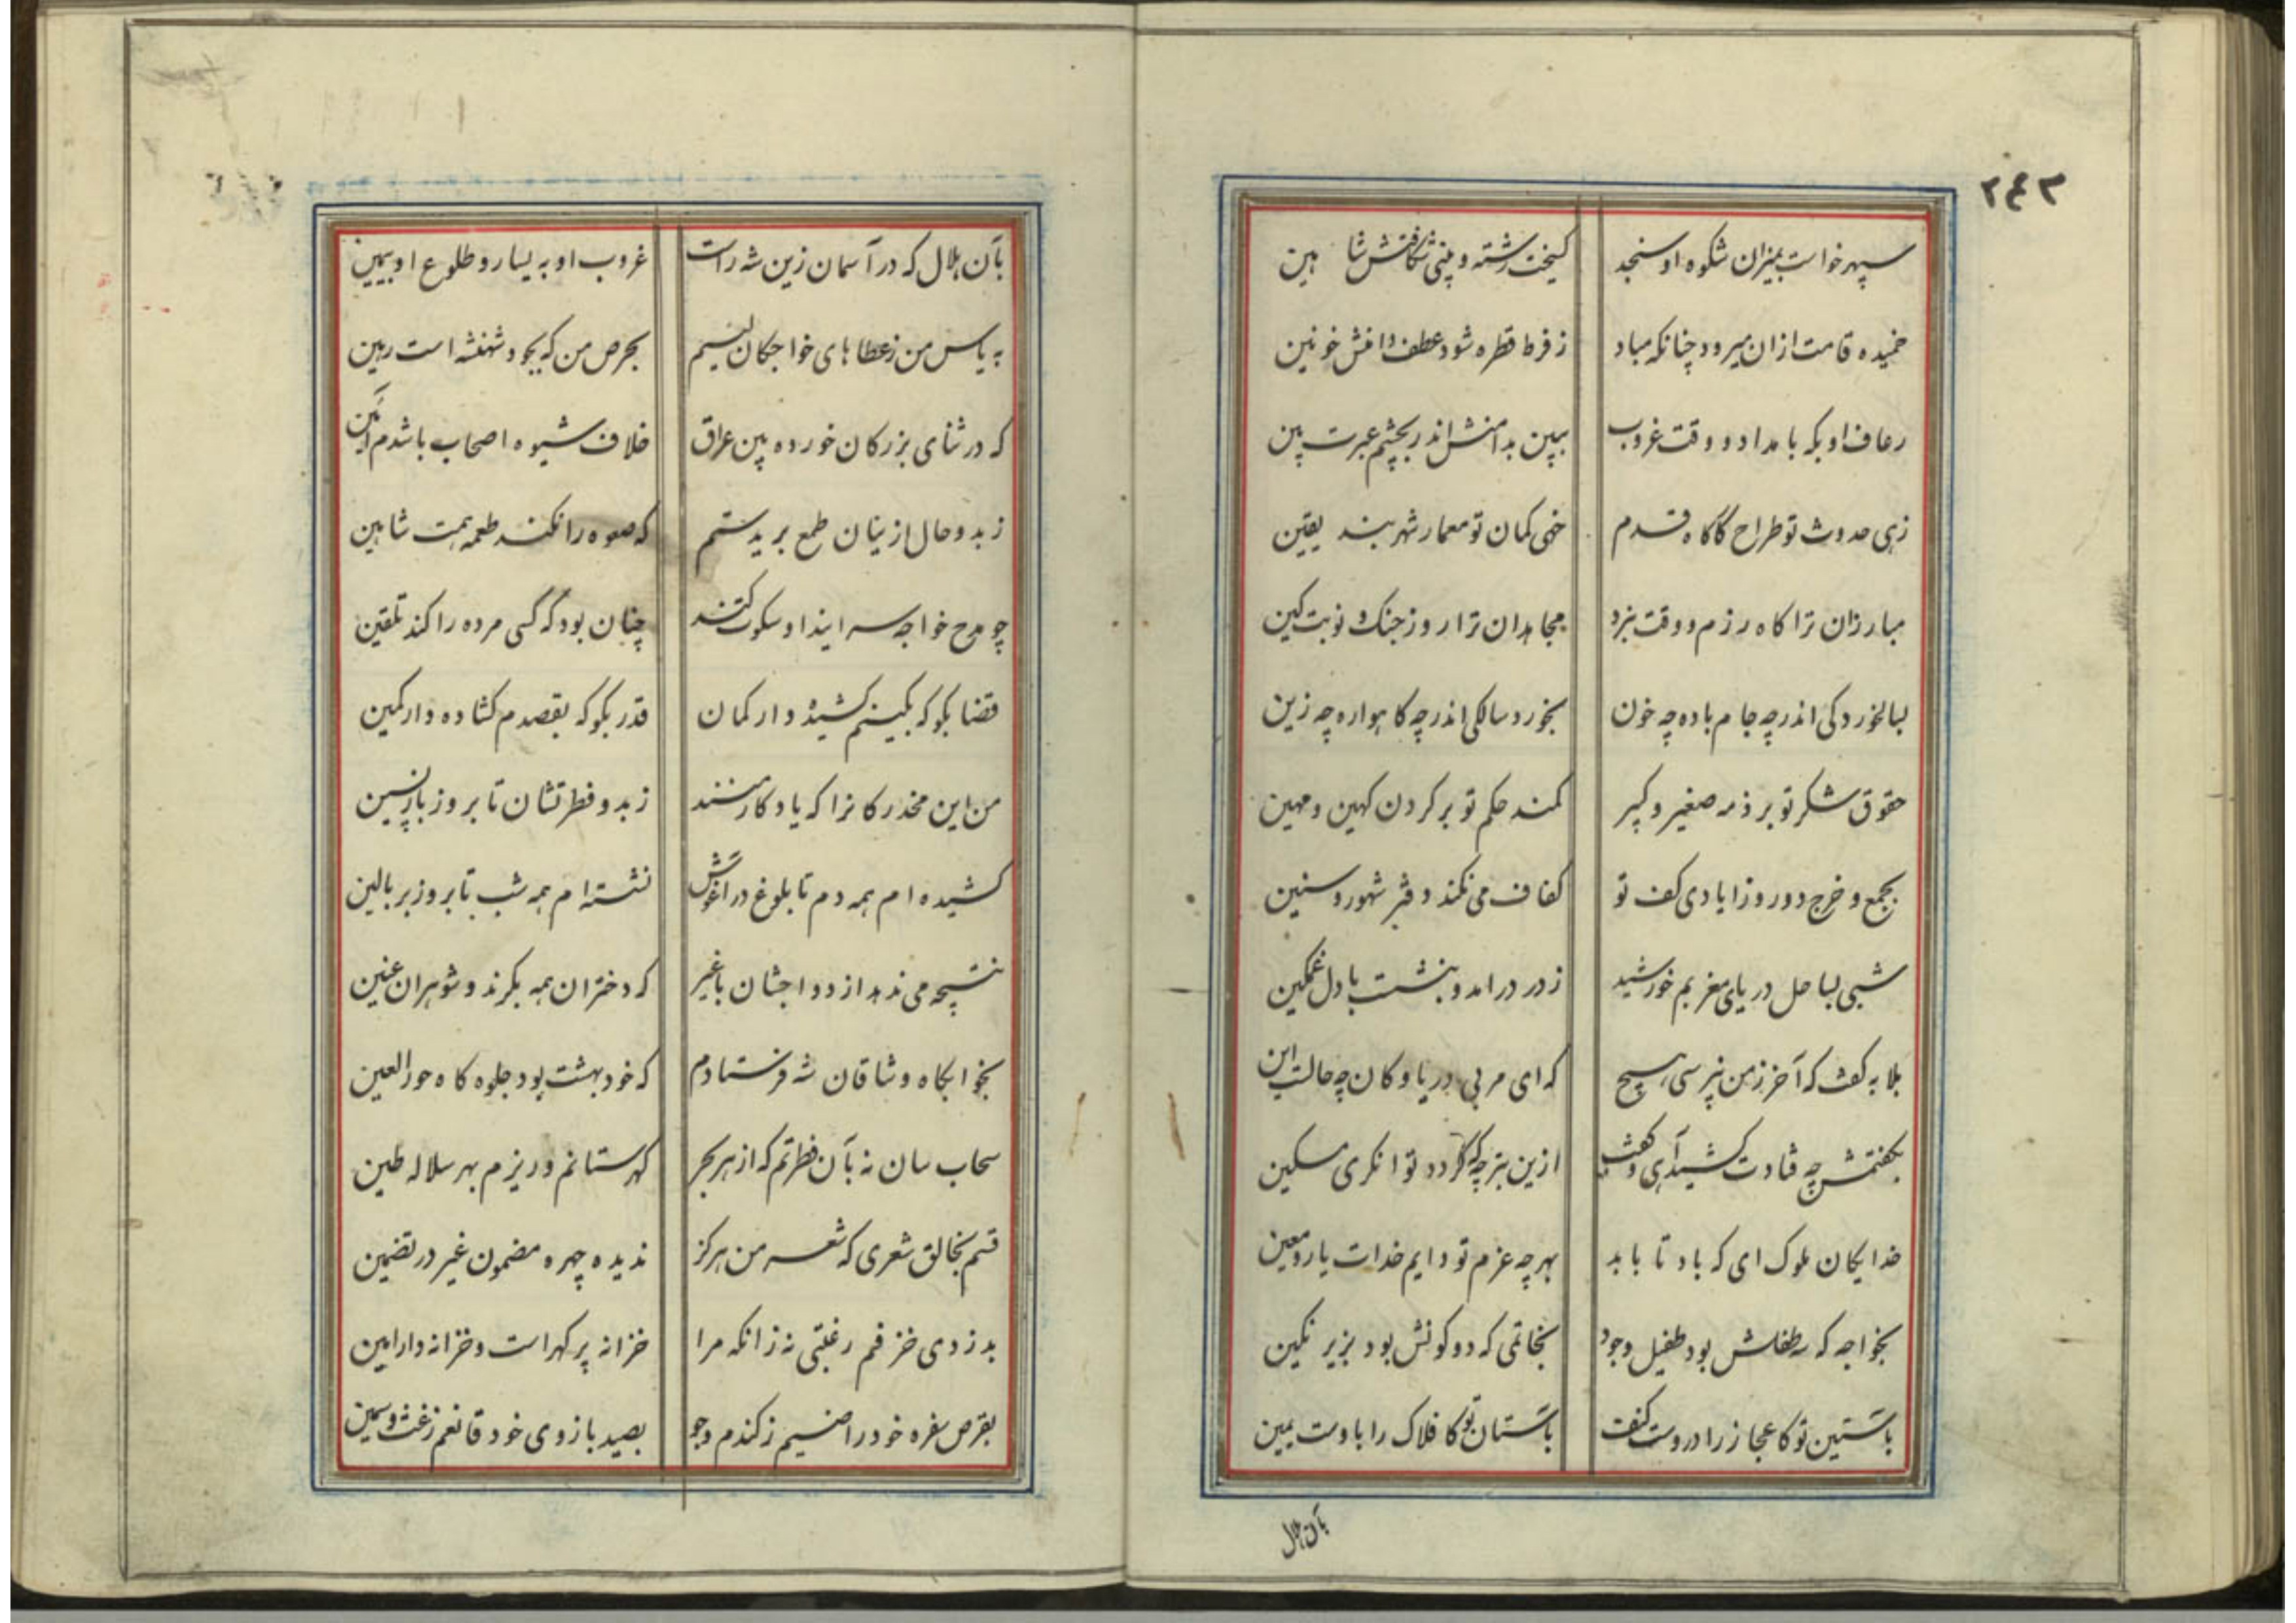 ۲۴۳
سپهر خواست بمیزان شکوه او سنجد گسیخت رشته و بینی شکافتش شاهین
خمیده قامت ازان میرود چنانکه مباد ز فرط قطره شود عطف دامنش خونین
رعاف او بکه بامداد و وقت غروب ببین بدامنش اندر بچشم عبرت بین
زهی حدوث تو طراح کاکاه قدم خهی کمان تو معمار شهربند یقین
مبارزان ترا کاه رزم و وقت نبرد مجاهدان ترا روز جنک و نوبت کین
بسالخوردکی اندر چه جام باده چه خون بخورد سالکی اندر چه کاهواره چه زین
حقوق شکر تو بر ذمه صغیر و کبیر کمند حکم تو بر کردن کهین و مهین
بجمع و خرج دو روز ایادی کف تو کفاف می نکند دفتر شهور و سنین
شبی بساحل دریای مغربم خورشید ز در درامد و بنشست با دل غمکین
بلابه کفت که آخر ز من نپرسی هیچ که ای مربی دریا و کان چه حالتست این
بکفتمش چه فتادت کشید آهی و کفت ازین بتر چه که کردد توانکری مسکین
خدایکان ملوک ای که باد تا بابد بهر چه عزم تو دایم خدات یار و معین
بخواجه که طفلش بود طفیل وجود بخاتمی که دو کونش بود بزیر نکین
بآستین تو کاعجاز را دروست کنف بآستان تو کافلاک را باوست یمین
بآن هلال
بآن هلال که در آسمان زین شه راست غروب او به یسار و طلوع او بیمین
به یاس من ز عطاهای خواجکان لئیم بحرص من که بجود شهنشه است رهین
که در ثنای بزرکان خورده بین عراق خلاف شیوه اصحاب باشدم آئین
ز بدو حال ازینان طمع بریدستم که صعوه را نکند طعمه همت شاهین
چو مدح خواجه سرایند او سکوت کنند چنان بود که کسی مرده را کند تلقین
قضا بکو که بکینم کشیده دار کمان قدر بکو که بقصدم کشاده دار کمین
من این مخدرکانرا که یادکار منند ز بدو فطرتشان تا بروز بازپسین
کشیده ام همه دم تا بلوغ در آغوش نشسته ام همه شب تا بروز بر بالین
نتیجه می ندهد ازدواجشان با غیر که دختران همه بکرند و شوهران عنین
بخوابکاه وشاقان شه فرستادم که خود بهشت بود جلوه کاه حور العین
سحاب سان نه بآن فطرتم که از هر بحر کهر ستانم و ریزم بهر سلاله طین
قسم بخالق شعری که شعر من هرکز ندیده چهره مضمون غیر در تضمین
بدزدی خزفم رغبتی نه زانکه مرا خزانه پر کهر است و خزانه دار امین
بقرص سفره خود راضیم ز کندم و جو بصید بازوی خود قانعم ز غث و سمین